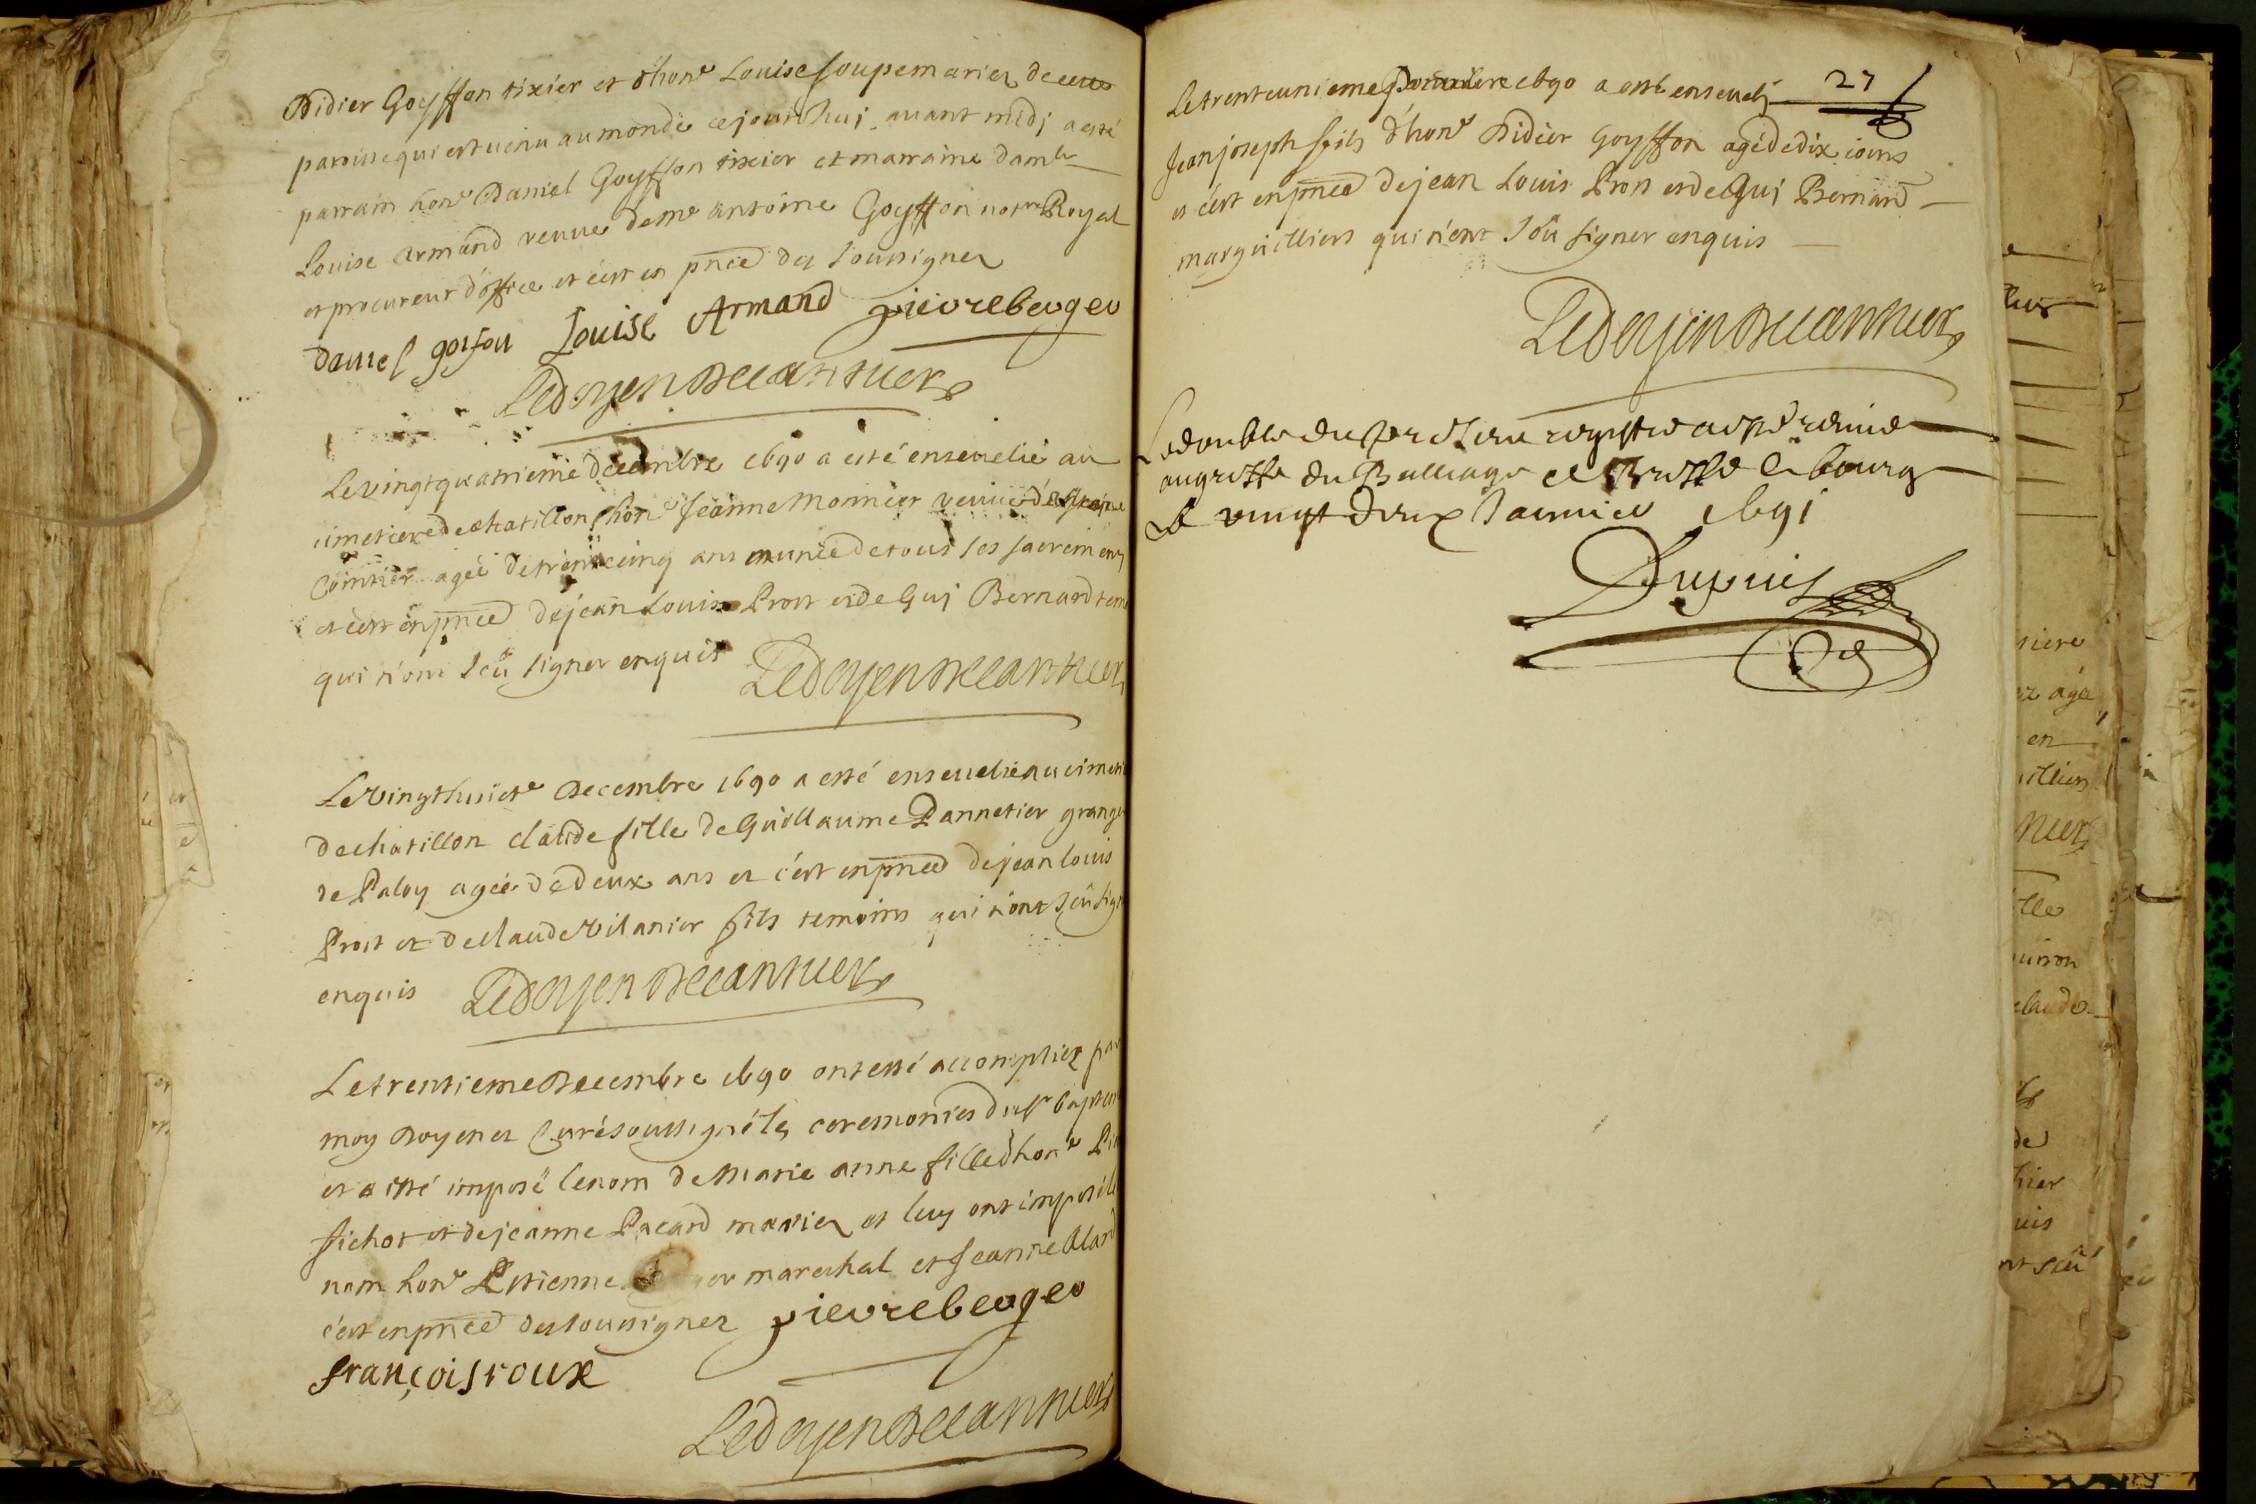 Didier Goyffon tixier et d'hon^e Louise soupe mariez de cette
paroisse qui est venu au monde ce jourdhuj avant midj a esté
parrain hon^e Daniel Goyffon tixier et marraine dam^lle
Louise Armand veuve de m^e antoine Goyffon not^re Royal
et procureur d'office et c'est en pñce des soussignez
daniel goifon Louise Armand pierre berger
Ledoyen Decannier
Le vingt quatrieme decembre 1690 a esté ensevelie au
cimetiere de chatillon hon^e Jeanne Monnier veuve
agée de trente cinq ans munie de tous ses sacremens
et c'est en pñce de jean Louis Prost et de Guj Bernard
qui n'ont sceu signer enquis
Ledoyen Decannier
Le vingt huict^e Decembre 1690 a esté ensevelie au cimeti
de chatillon claude fille de Guillaume Pannetier grange
de Paloy agée de deux ans et c'est en pñce de jean louis
Prost et de claude Vilanier fils temoins qui n'ont sceu sig
enquis Ledoyen Decannier
Le trentieme Decembre 1690 ont esté accomplies par
moy doyen et curé soussigné les ceremonies du s^t bapteme
et a esté imposé le nom de Marie anne fille d'hon^e
fichot et de jeanne Pacard mariez et luy ont imposé le
nom hon^e Etienne marechal et Jeanne
c'est en pñce des soussignez pierre berger
françois roux
Ledoyen Decannier
27
Le trente unieme Decembre 1690 a esté ensevelj
Jean joseph fils d'hon^e Didier Goyffon agé de dix jours
et c'est en pñce de jean Louis Prost et de Guj Bernard
marguilliers qui n'ont sceu signer enquis
Ledoyen Decannier
Le double du present registre a esté remis
au greffe du Balliage de Bresse a bourg
Le vingt deux Janvier 1691
Dupuis